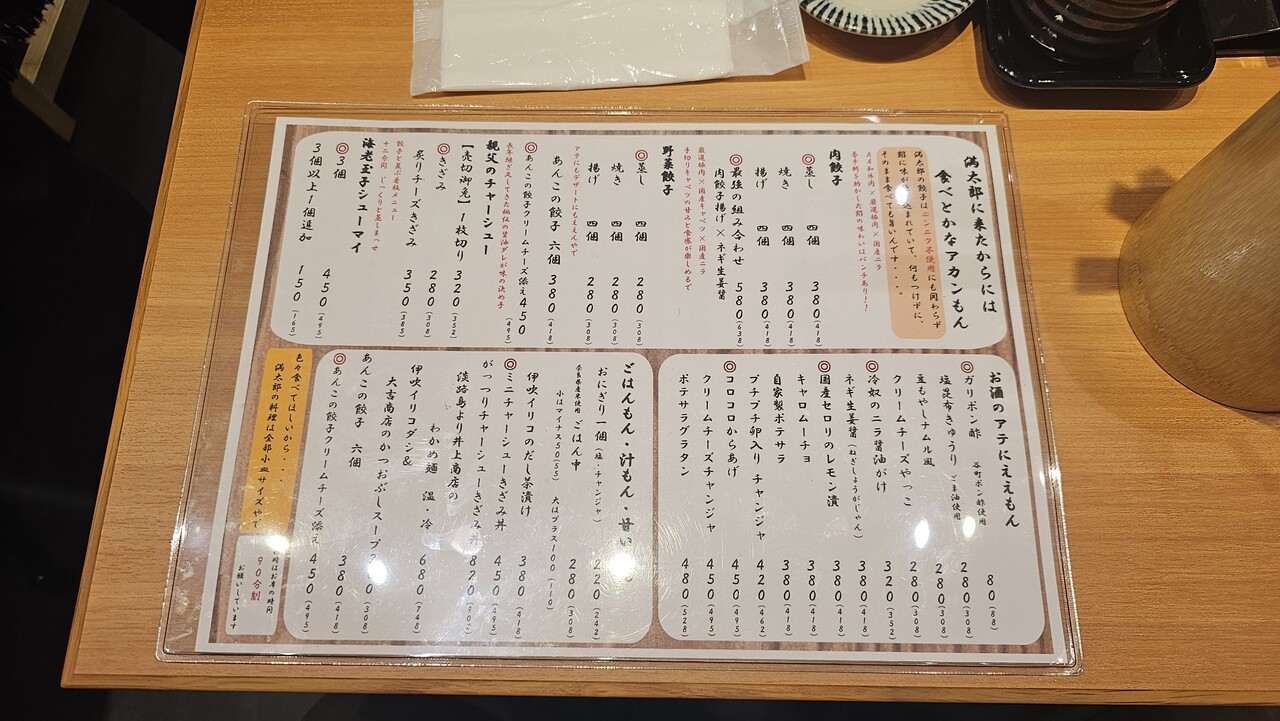 満太郎に来たからには
食べとかなアカンもん
満太郎の餃子はニンニク不使用にも関わらず
餡に味が
込まれていて、何もつけずに、
そのまま食べても旨いんです・・・。
肉餃子
月産和牛肉×厳選豚肉×国産ニラ
◎蒸し 四個 380(418)
焼き 四個 380(418)
揚げ 四個 380(418)
◎最強の組み合わせ
肉餃子揚げ×ネギ生姜醤 580(638)
厳選豚肉×国産キャベツ×国産ニラ
手切りキャベツの甘みと食感が楽しめるで
野菜餃子
◎蒸し 四個 280(308)
焼き 四個 280(308)
揚げ 四個 280(308)
アテにもデザートにもええんやで
あんこの餃子 六個 380(418)
◎あんこの餃子クリームチーズ添え 450(495)
長年継ぎ足してきた秘伝の醤油ダレが味の決め手
親父のチャーシュー
【売切御免】一枚切り 320(352)
◎きざみ 280(308)
炙りチーズきざみ 350(385)
餃子と並ぶ看板メニュー
十二分間 じっくりと蒸しまっせ
海老玉子シューマイ
◎3個 450(495)
3個以上1個追加 150(165)
お酒のアテにええもん
◎ガリポン酢 谷町ポン酢使用 80(88)
塩昆布きゅうり ごま油使用 280(308)
豆もやしナムル風 280(308)
クリームチーズやっこ 280(308)
◎冷奴のニラ醤油がけ 320(352)
ネギ生姜醤(ねぎしょうがじゃん) 380(418)
◎国産セロリのレモン漬 380(418)
キャロムーチョ 380(418)
自家製ポテサラ 380(418)
プチプチ卵入り チャンジャ 420(462)
◎コロコロからあげ 450(495)
クリームチーズチャンジャ 450(495)
ポテサラグラタン 480(528)
ごはんもん・汁もん・甘い
おにぎり一個(塩・チャンジャ) 220(242)
奈良県産米使用 ごはん中 280(308)
小はマイナス50(55) 大はプラス100(110)
伊吹イリコのだし茶漬け 380(418)
◎ミニチャーシューきざみ丼 450(495)
がっつりチャーシューきざみ丼 820(902)
淡路島より井上商店の
わかめ麺 温・冷 680(748)
伊吹イリコダシ&
大吉商店のかつおぶしスープ 280(308)
あんこの餃子 六個 380(418)
◎あんこの餃子クリームチーズ添え 450(495)
色々食べてほしいから・・・
満太郎の料理は全部小皿サイズやで
時はお席の時間
90分制
お願いしています